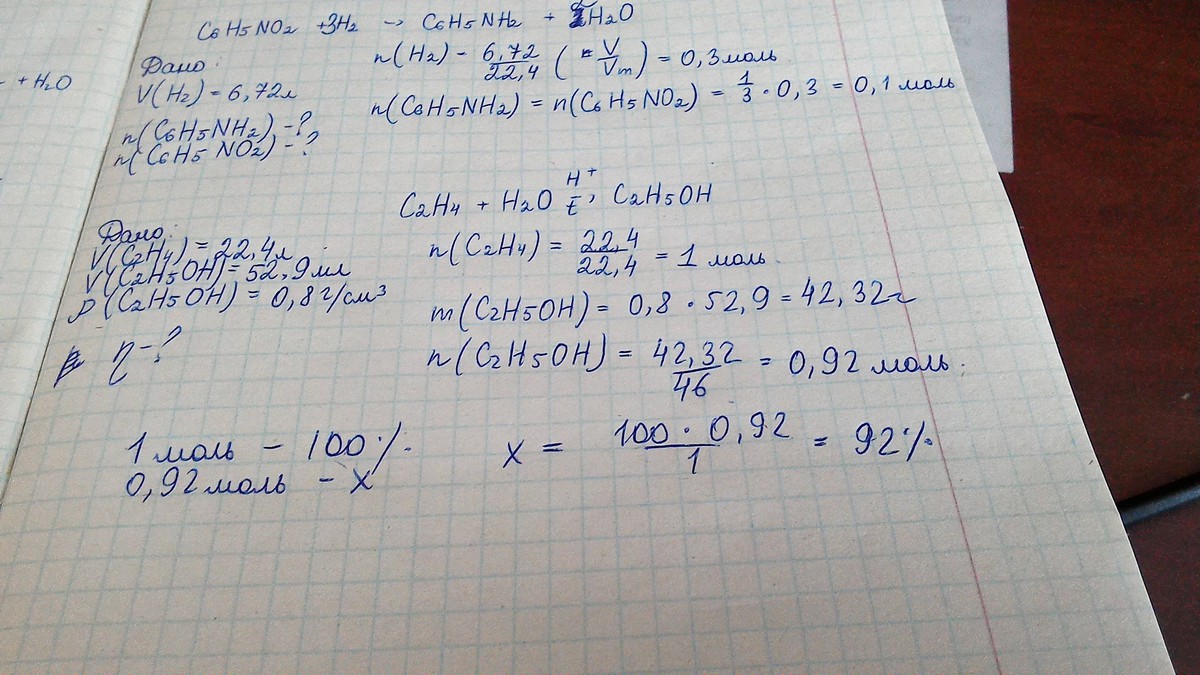 C6H5NO2 +3H2 → C6H5NH2 + 2H2O
+ H2O
Дано:
V(H2) = 6,72л
n(C6H5NH2) -?
n(C6H5NO2) -?
n(H2) - 6,72/22,4 ( = V/Vm ) = 0,3 моль
n(C6H5NH2) = n(C6H5NO2) = 1/3 · 0,3 = 0,1 моль
C2H4 + H2O H+, t C2H5OH
Дано:
V(C2H4) = 22,4л
V(C2H5OH) = 52,9мл
ρ(C2H5OH) = 0,8 г/см³
η -?
n(C2H4) = 22,4/22,4 = 1 моль.
m(C2H5OH) = 0,8 · 52,9 = 42,32г
n(C2H5OH) = 42,32/46 = 0,92 моль.
1 моль - 100%.
0,92 моль - x
x = 100 · 0,92/1 = 92%.